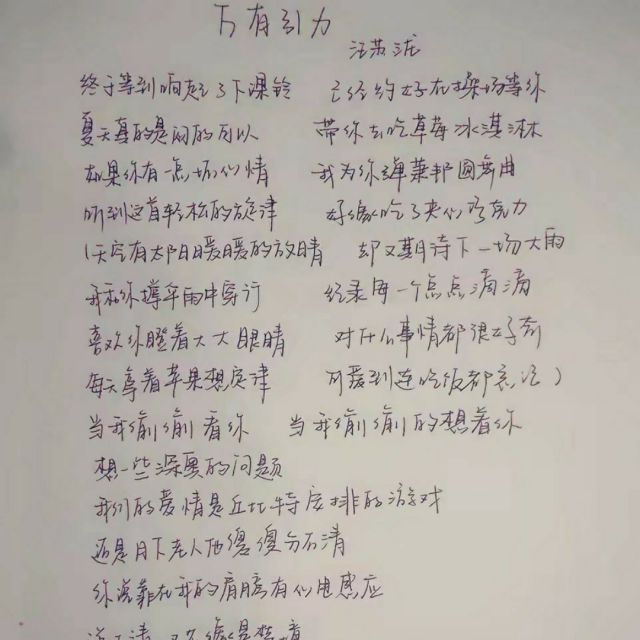 万有引力
汪苏泷
终于等到响起了下课铃 已经约好在操场等你
夏天真的是闷的可以 带你去吃草莓冰淇淋
如果你有一点坏心情 我为你弹莱邦圆舞曲
听到这首轻松的旋律 好像吃了夹心巧克力
(天空有太阳暖暖的放晴 却又期待下一场大雨
我和你撑伞雨中穿行 纪录每一个点点滴滴
喜欢你瞪着大大眼睛 对什么事情都很好奇
每天等着苹果想定律 可爱到连吃饭都忘记)
当我偷偷看你 当我偷偷的想着你
想一些深奥的问题
我们的爱情是丘比特安排的游戏
还是月下老人他傻傻分不清
你说靠在我的肩膀有心电感应